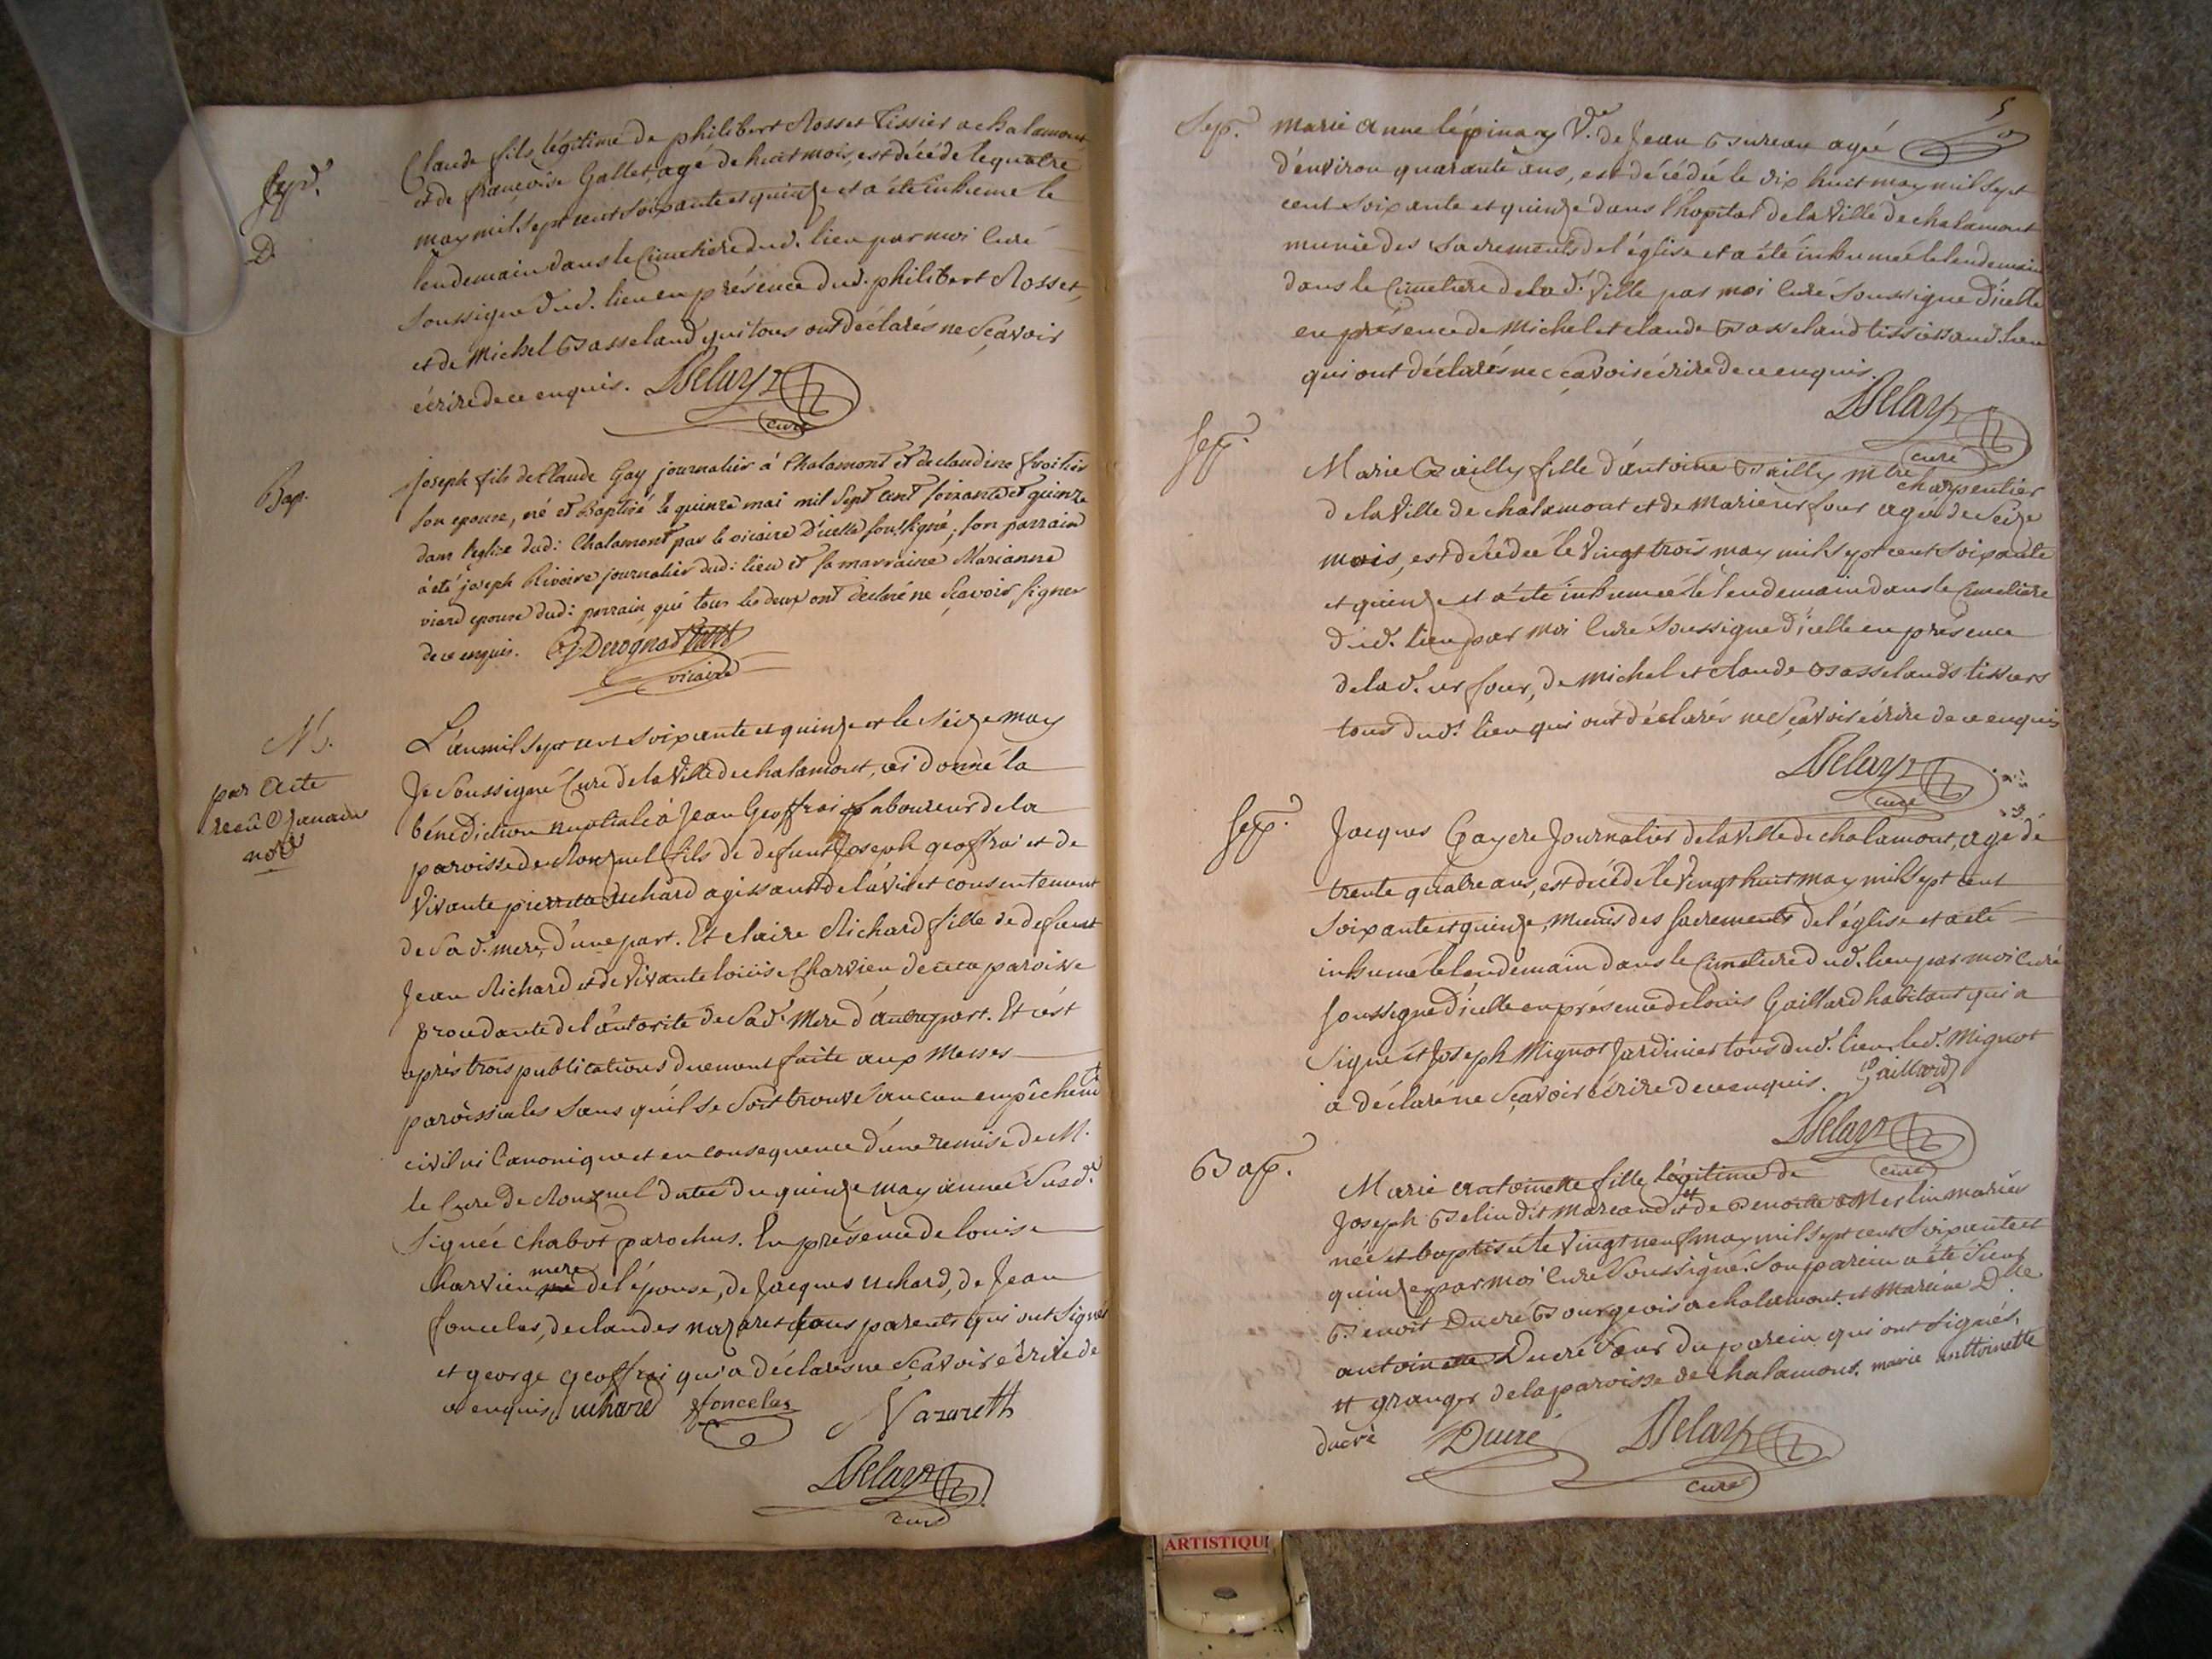 Sep.
D.
Claude fils légitime de philibert Rosset tissier a chalamont
et de françoise Gallet, agé de huit mois, est décédé le quatre
may mil sept cent soixante et quinze et a été inhumé le
lendemain dans le Cimetiere dud. lieu par moi Curé
soussigné dud. lieu en présence dud. philibert Rosset,
et de Michel Basseland qui tous ont déclarés ne sçavoir
écrire de ce enquis. Delay
curé
Bap.
Joseph fils de Claude Gay journalier à Chalamont et de claudine
son epouse, né et Baptisé le quinze mai mil sept cent soixante et quinze
dans l'eglise dud: Chalamont par le vicaire d'icelle soussigné; son parrain
à été joseph Rivoire journalier dud: lieu et sa marraine Marianne
viard epouse dud: parrain qui tous les deux ont declaré ne sçavoir signer
de ce enquis.
vicaire
M.
par acte
recû
not
L'an mil sept cent soixante et quinze et le seize may
Je soussigné Curé de la Ville de chalamont, ai donné la
bénédiction nuptiale à Jean Geoffrai Laboureur de la
paroisse de Ronzuel fils de defunt Joseph geoffrai et de
vivante pierrette uchard agissant de l'avis et consentement
de sa d. mere, d'une part. Et claire Richard fille de defunt
Jean Richard et de vivante loüise Charvieu de cette paroisse
procedante de l'autorité de sa d. Mere d'autre part. Et c'est
après trois publications duement faite aux Messes
paroissiales sans qu'il se soit trouvé aucun empêchemt
civil ni Canonique et en consequence d'une remise de M.
le Curé de Ronzuel datée du quinze may année susd.
signée chabot parochus. En présence de louise
charvieu mere de l'épouse, de Jacques uchard, de Jean
foncelas, de claude nazaret tous parents qui ont signés
et george geoffrai qui a déclarés ne sçavoir écrire de
ce enquis. uchard foncelas Nazareth
Delay
curé
5
Sep.
marie anne lépinay Ve. de Jean Bureau agée
d'environ quarante ans, est décédée le dix huit may mil sept
cent soixante et quinze dans l'hopital de la Ville de chalamont
munie des sacrements de l'église et a été inhumée le lendemain
dans le Cimetiere de la d. Ville par moi Curé soussigné d'icelle
en présence de Michel et claude Basseland tissiers aud. lieu
qui ont déclarés ne sçavoir écrire de ce enquis.
Delay
curé
Sep.
Marie Bailly fille d'antoine Bailly mtre charpentier
de la Ville de chalamont et de Marie agée de seize
mois, est décédée le vingt trois may mil sept cent soixante
et quinze et a été inhumée le lendemain dans le Cimetiere
dud. lieu par moi Curé soussigné d'icelle en présence
de lad. de Michel et claude Basselands tissiers
tous dud. lieu qui ont déclarés ne sçavoir écrire de ce enquis
Delay
curé
Sep.
Jacques Gayere Journalier de la Ville de chalamont, agé de
trente quatre ans, est décédé le vingt huit may mil sept cent
soixante et quinze, munis des sacrements de l'église et a été
inhumé le lendemain dans le Cimetiere dud. lieu par moi curé
soussigné d'icelle en présence de louis Gaillard habitant qui a
signé et Joseph Mignot Jardinier tous dud. lieu led. Mignot
a déclaré ne sçavoir écrire de ce enquis. Gaillard
Delay
curé
Bap.
Marie antoinette fille légitime de
Joseph Belin dit Marcand et de Benoite Merlin mariés
née et baptisée le vingt neuf may mil sept cent soixante et
quinze par moi Curé soussigné. Son parein a été Sieur
Benoit Ducré Bourgeois a chalamont et Mareine Dlle
antoinette Ducré soeur du parein qui ont signés,
et granger de la paroisse de chalamont. marie anttoinette
ducré Ducré Delay
curé
ARTISTIQU